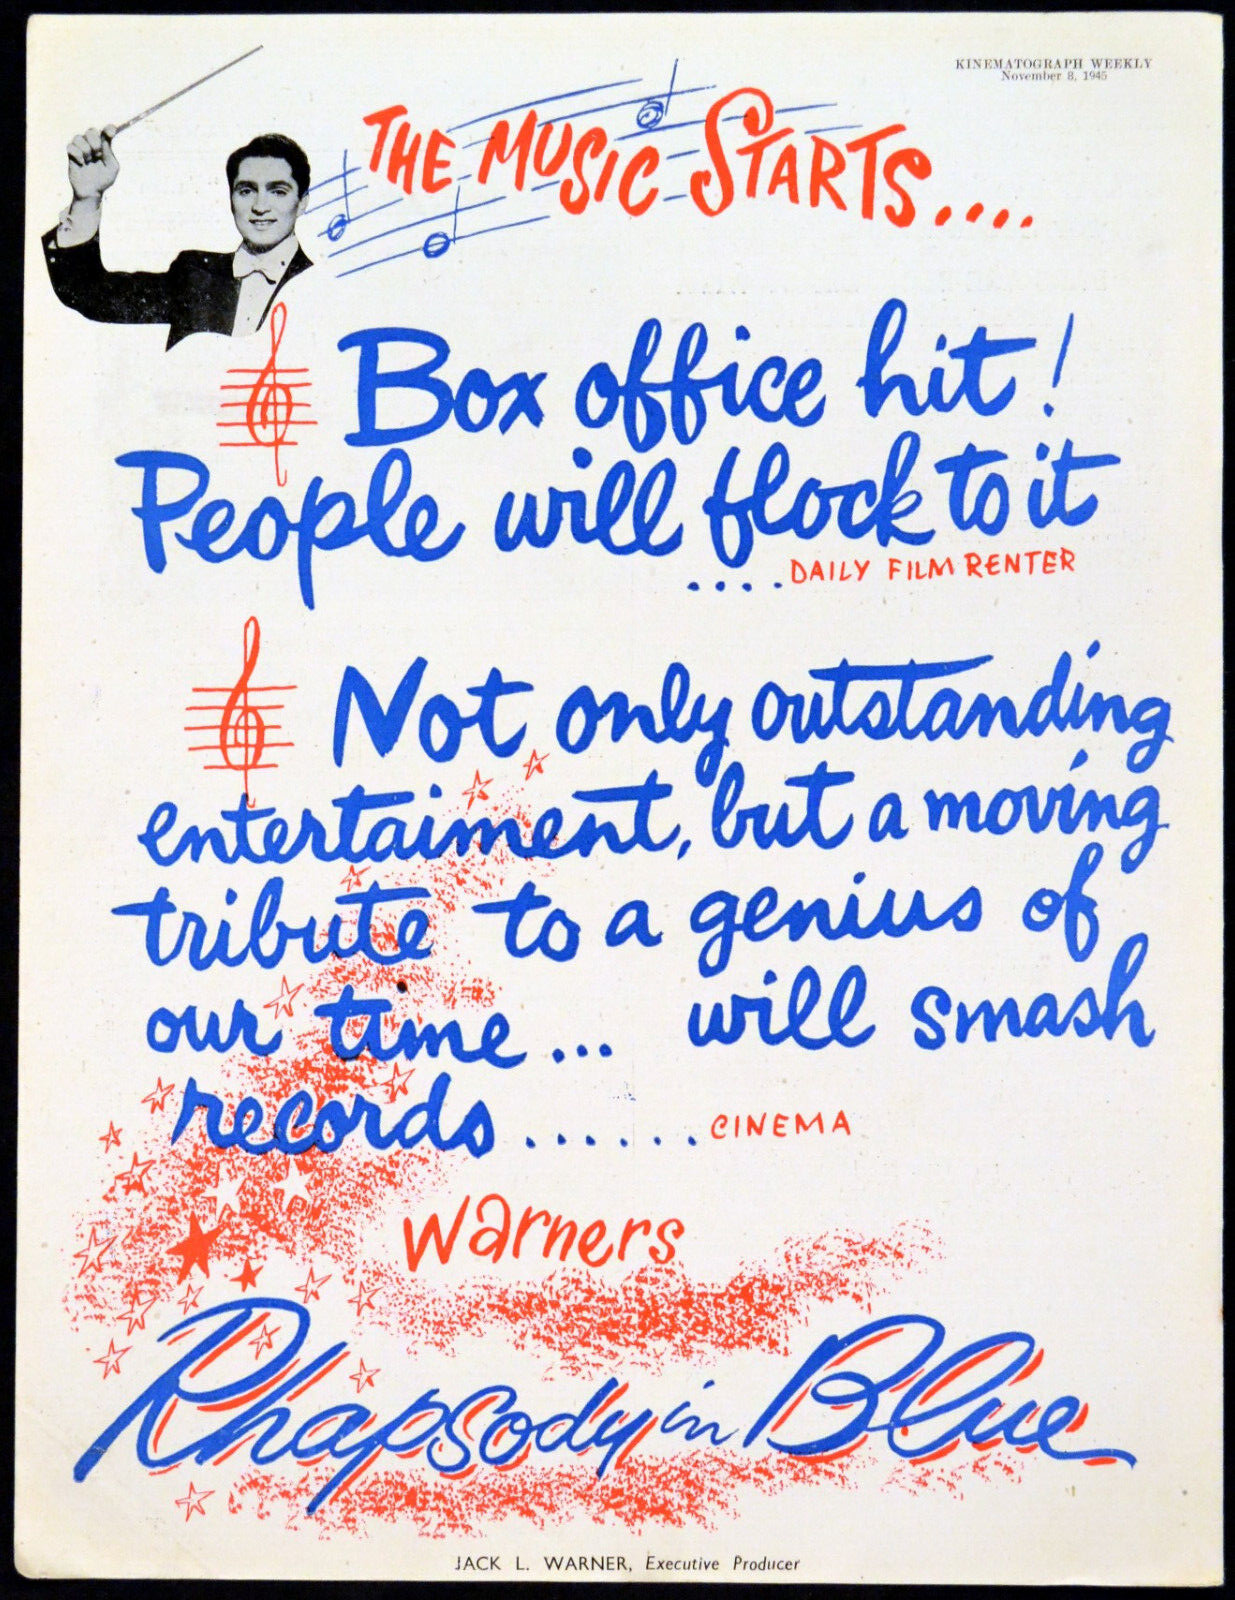 KINEMATOGRAPH WEEKLY
November 8, 1945
THE MUSIC STARTS....
Box office hit!
People will flock to it
....DAILY FILM RENTER
Not only outstanding
entertaiment, but a moving
tribute to a genius of
our time... will smash
records......CINEMA
Warners
Rhapsody in Blue
JACK L. WARNER, Executive Producer